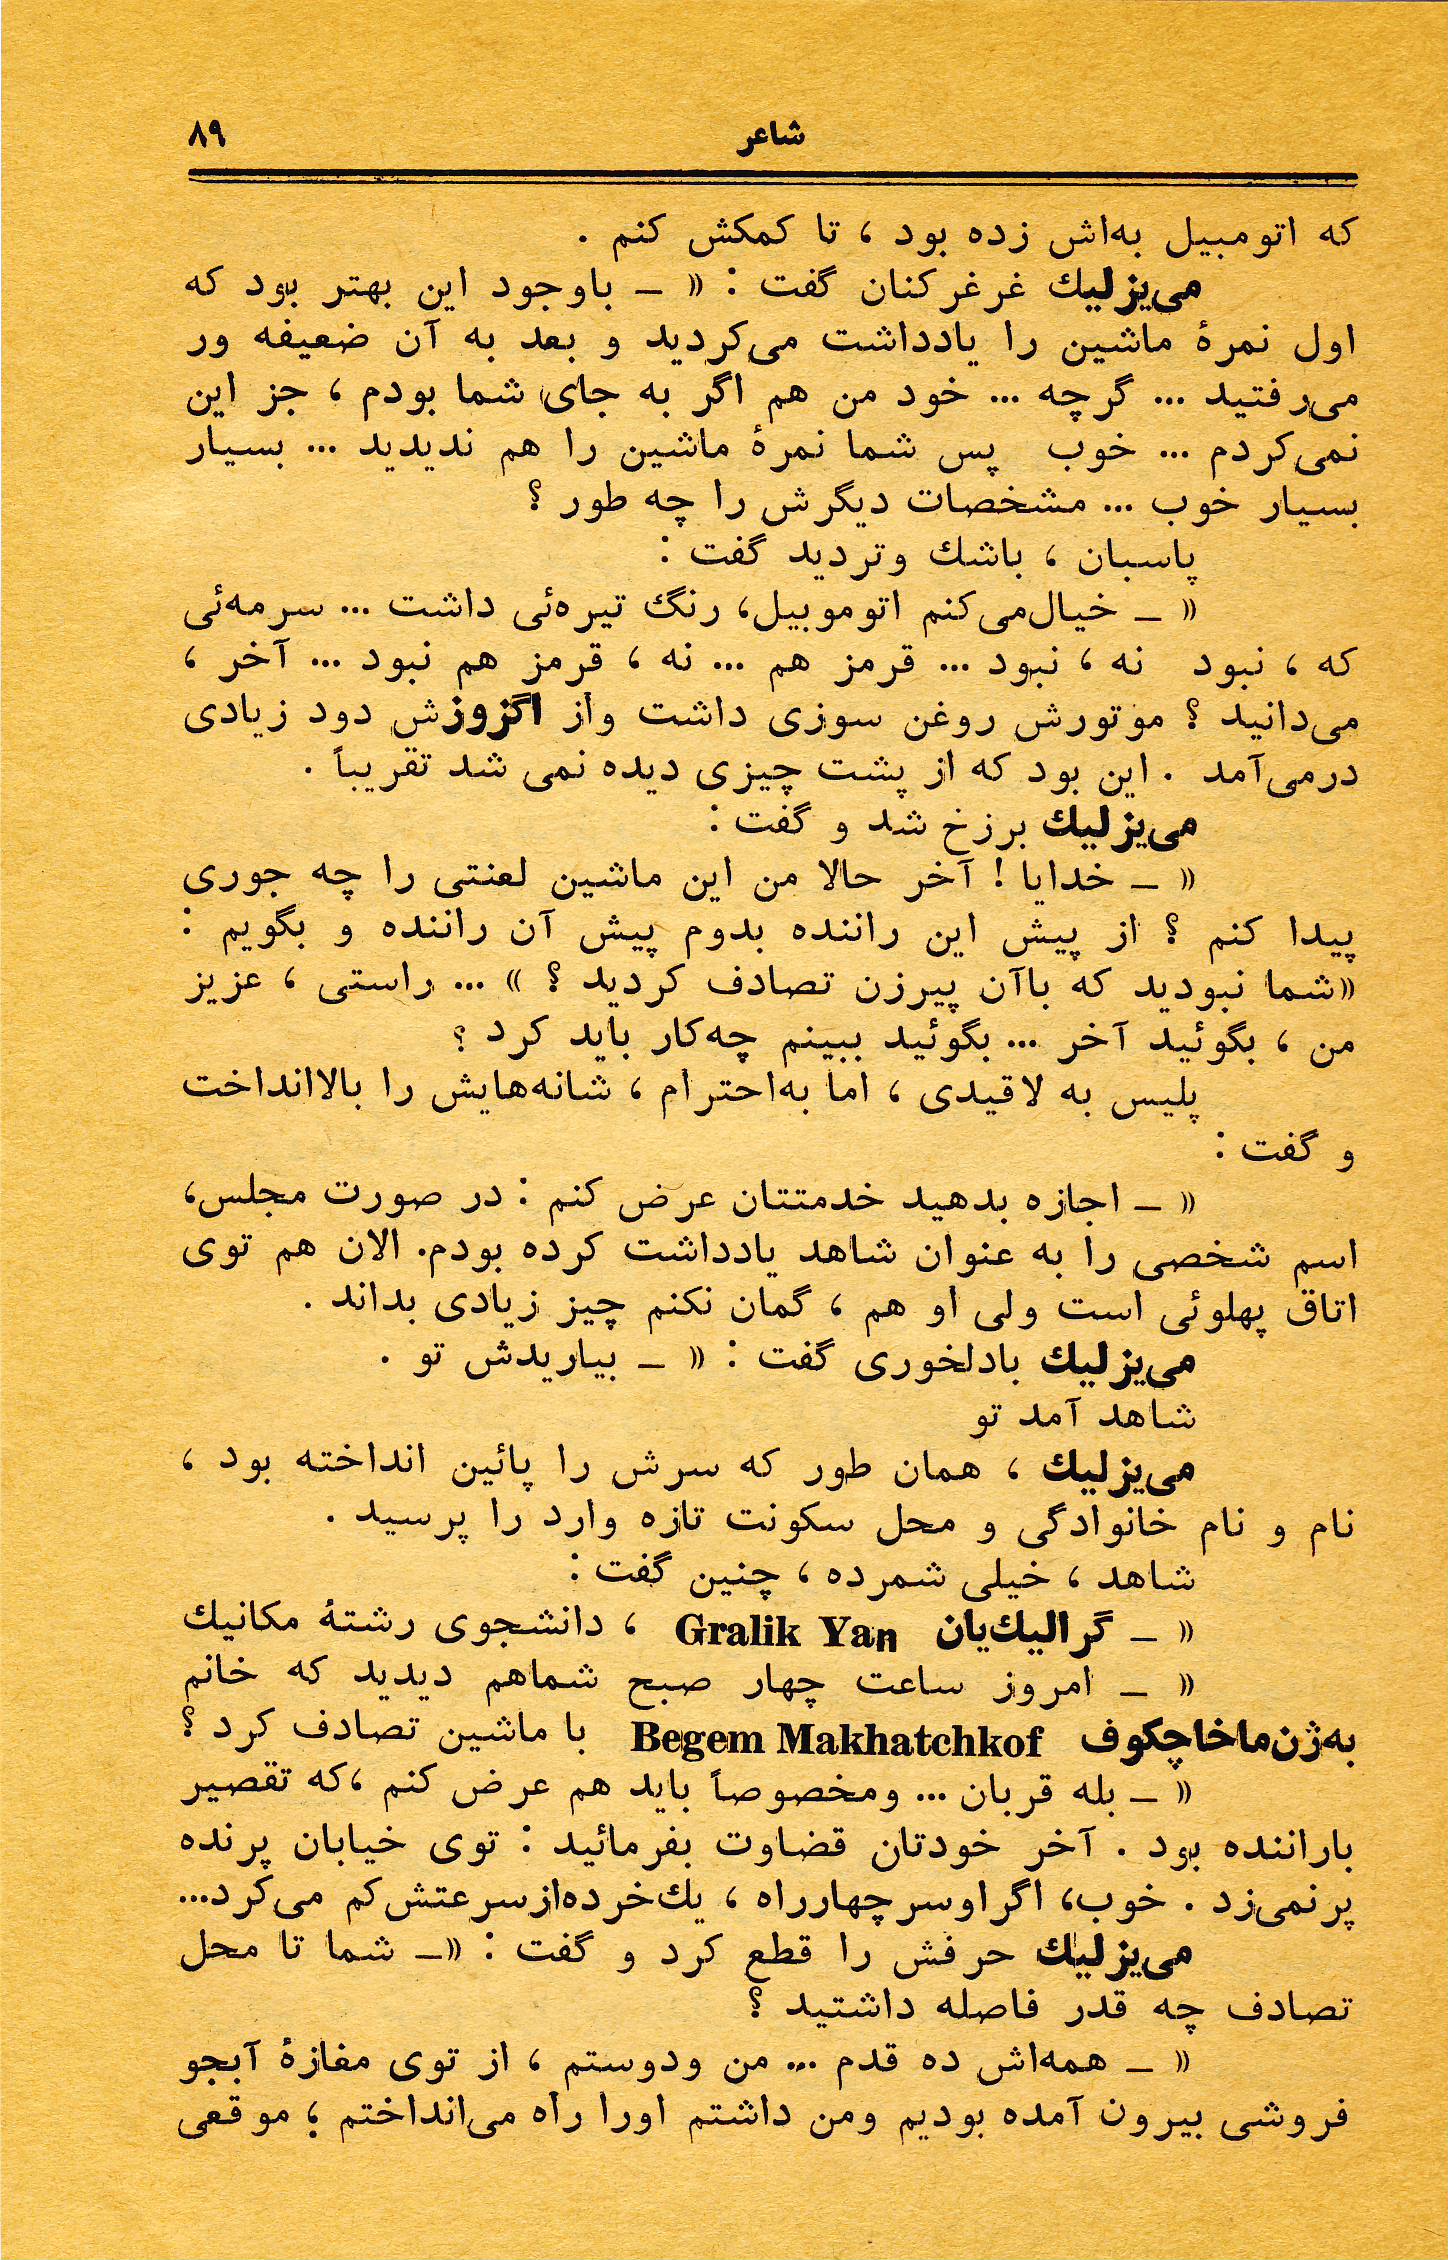 شاعر ۸۹
که اتومبیل به‌اش زده بود ، تا کمکش کنم .
می‌یزلیك غرغرکنان گفت : « ــ باوجود این بهتر بود که
اول نمرهٔ ماشین را یادداشت می‌کردید و بعد به آن ضعیفه ور
می‌رفتید ... گرچه ... خود من هم اگر به جای شما بودم ، جز این
نمی‌کردم ... خوب پس شما نمرهٔ ماشین را هم ندیدید ... بسیار
بسیار خوب ... مشخصات دیگرش را چه طور ؟
پاسبان ، باشك وتردید گفت :
« ــ خیال‌می‌کنم اتوموبیل، رنگ تیره‌ئی داشت ... سرمه‌ئی
که ، نبود نه ، نبود ... قرمز هم ... نه ، قرمز هم نبود ... آخر ،
می‌دانید ؟ موتورش روغن سوزی داشت واز اگزوزش دود زیادی
درمی‌آمد . این بود که از پشت چیزی دیده نمی شد تقریباً .
می‌یزلیك برزخ شد و گفت :
« ــ خدایا ! آخر حالا من این ماشین لعنتی را چه جوری
پیدا کنم ؟ از پیش این راننده بدوم پیش آن راننده و بگویم :
«شما نبودید که باآن پیرزن تصادف کردید ؟ » ... راستی ، عزیز
من ، بگوئید آخر ... بگوئید ببینم چه‌کار باید کرد ؟
پلیس به لاقیدی ، اما به‌احترام ، شانه‌هایش را بالاانداخت
و گفت :
« ــ اجازه بدهید خدمتتان عرض کنم : در صورت مجلس،
اسم شخصی را به عنوان شاهد یادداشت کرده بودم. الان هم توی
اتاق پهلوئی است ولی او هم ، گمان نکنم چیز زیادی بداند .
می‌یزلیك بادلخوری گفت : « ــ بیاریدش تو .
شاهد آمد تو
می‌یزلیك ، همان طور که سرش را پائین انداخته بود ،
نام و نام خانوادگی و محل سکونت تازه وارد را پرسید .
شاهد ، خیلی شمرده ، چنین گفت :
« ــ گرالیك‌یان Gralik Yan ، دانشجوی رشتهٔ مکانیك
« ــ امروز ساعت چهار صبح شماهم دیدید که خانم
به‌ژن‌ماخاچکوف Begem Makhatchkof با ماشین تصادف کرد ؟
« ــ بله قربان ... ومخصوصاً باید هم عرض کنم ،که تقصیر
باراننده بود . آخر خودتان قضاوت بفرمائید : توی خیابان پرنده
پرنمی‌زد . خوب، اگراوسرچهارراه ، یك‌خرده‌ازسرعتش‌کم می‌کرد...
می‌یزلیك حرفش را قطع کرد و گفت : «ــ شما تا محل
تصادف چه قدر فاصله داشتید ؟
« ــ همه‌اش ده قدم ... من ودوستم ، از توی مغازهٔ آبجو
فروشی بیرون آمده بودیم ومن داشتم اورا راه می‌انداختم ؛ موقعی